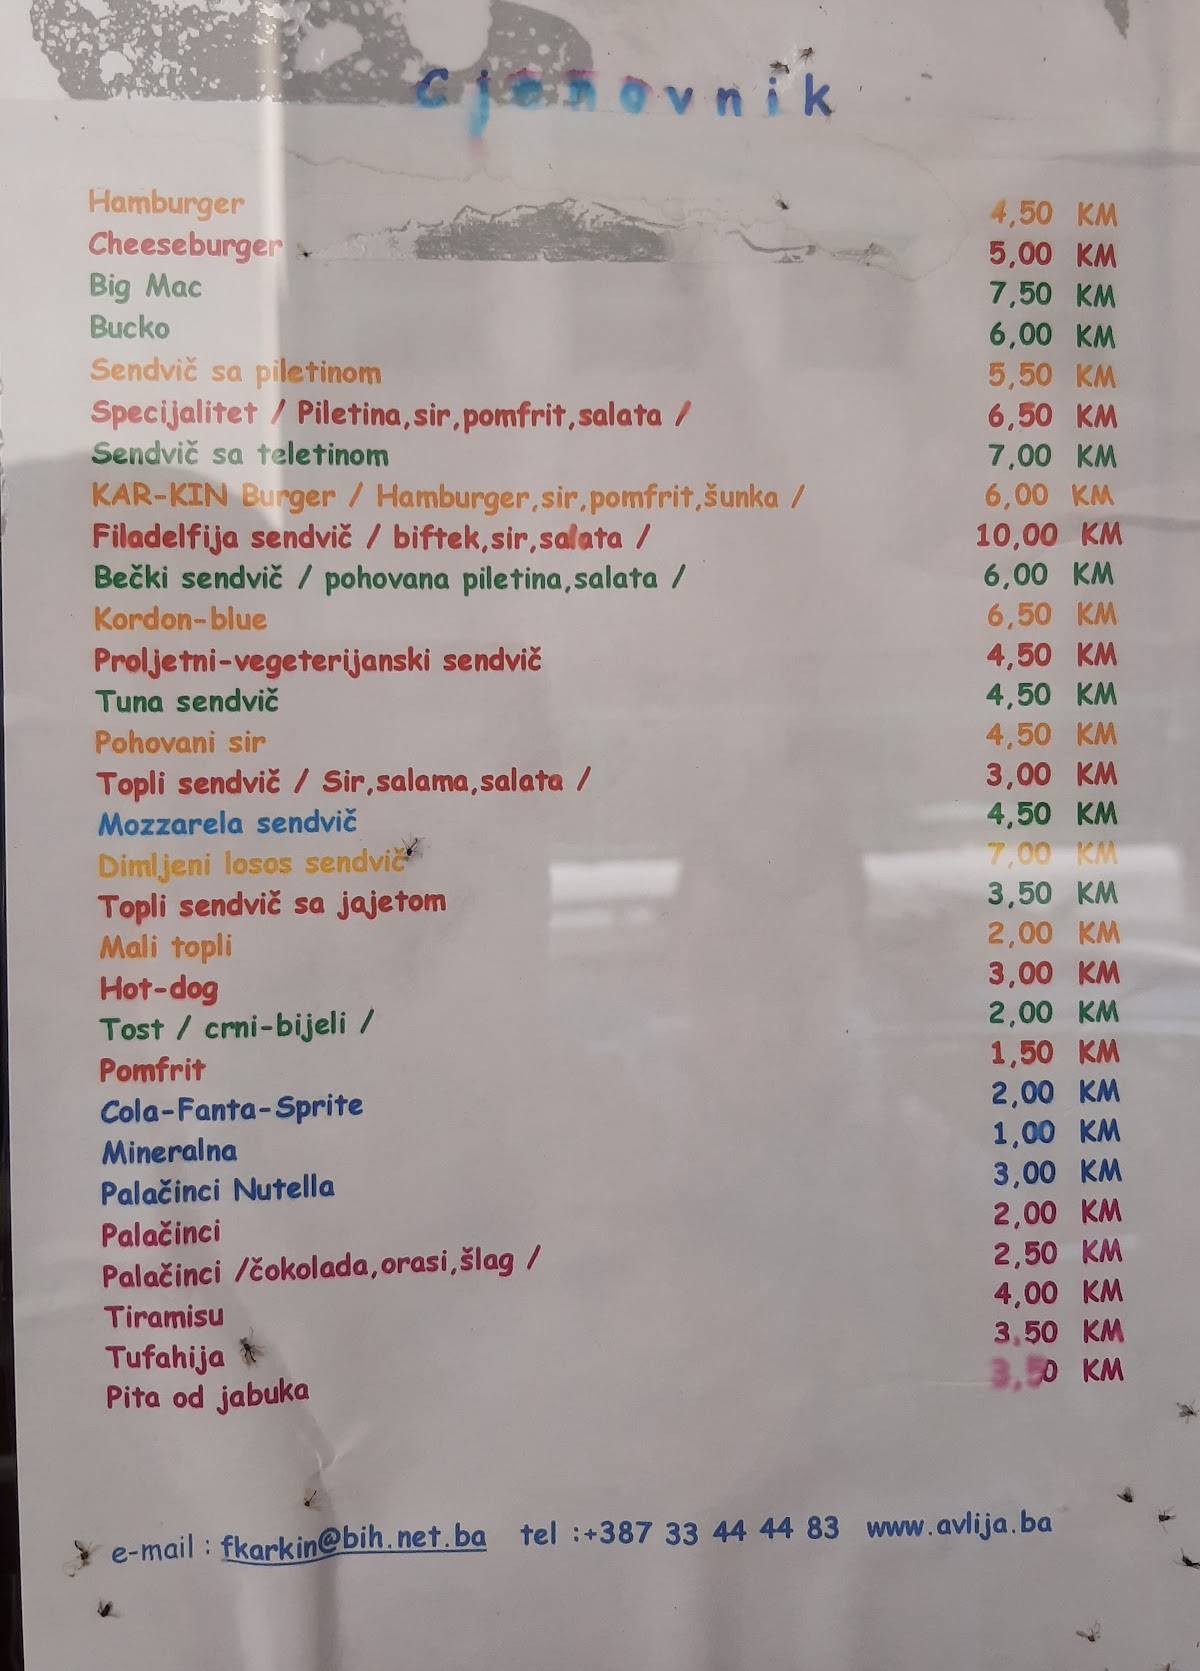 Cjenovnik
Hamburger 4,50 KM
Cheeseburger 5,00 KM
Big Mac 7,50 KM
Bucko 6,00 KM
Sendvič sa piletinom 5,50 KM
Specijalitet / Piletina,sir,pomfrit,salata / 6,50 KM
Sendvič sa teletinom 7,00 KM
KAR-KIN Burger / Hamburger,sir,pomfrit,šunka / 6,00 KM
Filadelfija sendvič / biftek,sir,salata / 10,00 KM
Bečki sendvič / pohovana piletina,salata / 6,00 KM
Kordon-blue 6,50 KM
Proljetni-vegeterijanski sendvič 4,50 KM
Tuna sendvič 4,50 KM
Pohovani sir 4,50 KM
Topli sendvič / Sir,salama,salata / 3,00 KM
Mozzarela sendvič 4,50 KM
Dimljeni losos sendvič 7,00 KM
Topli sendvič sa jajetom 3,50 KM
Mali topli 2,00 KM
Hot-dog 3,00 KM
Tost / crni-bijeli / 2,00 KM
Pomfrit 1,50 KM
Cola-Fanta-Sprite 2,00 KM
Mineralna 1,00 KM
Palačinci Nutella 3,00 KM
Palačinci 2,00 KM
Palačinci /čokolada,orasi,šlag / 2,50 KM
Tiramisu 4,00 KM
Tufahija 3,50 KM
Pita od jabuka 3,50 KM
e-mail : fkarkin@bih.net.ba tel :+387 33 44 44 83 www.avlija.ba